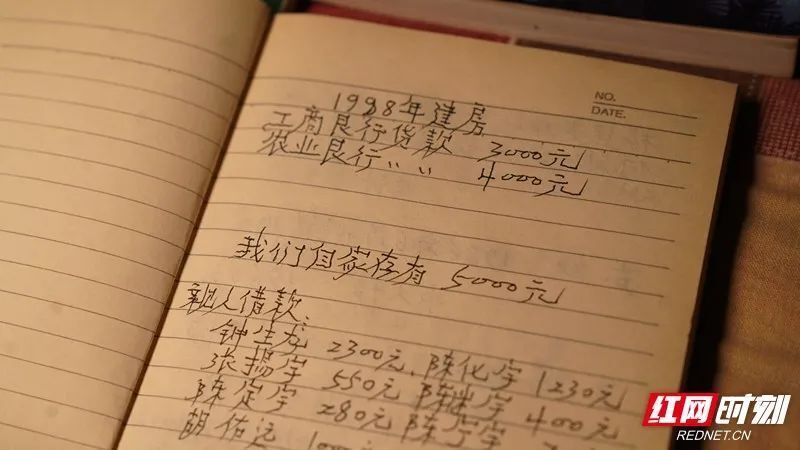 NO.
DATE.
1988年建房
工商艮行贷款 3000元
农业艮行〃〃 4000元
我们自家存有 5000元
亲人借款、
钟生龙 2300元、陈化宇 1230元
张揚宇 550元 陈 宇 400元
陈定宇 280元 陈宁宇
胡佑远 1000
红网时刻
REDNET.CN